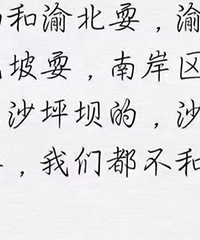 和渝北耍，渝
坡耍，南岸区
沙坪坝的，沙
，我们都不和